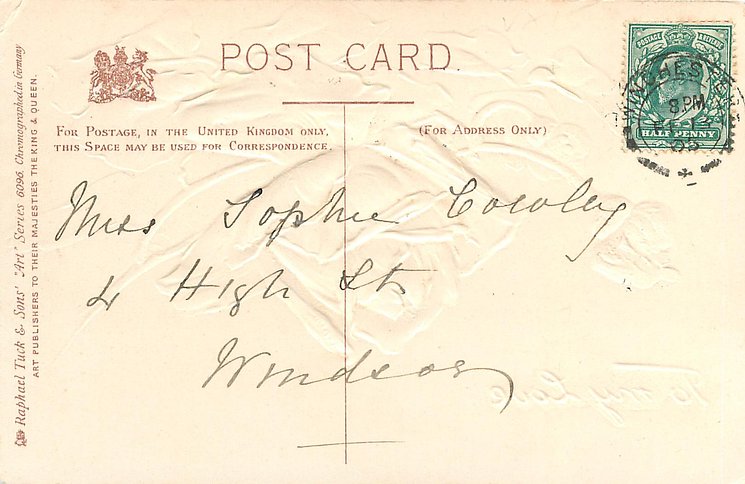 POST CARD.
FOR POSTAGE, IN THE UNITED KINGDOM ONLY,
THIS SPACE MAY BE USED FOR CORRESPONDENCE.
(FOR ADDRESS ONLY)
POSTAGE REVENUE
HALF PENNY
8 PM
05
Miss Sophie Cowley
4 High St
Windsor
To my Love
Raphael Tuck & Sons' "Art" Series 6096. Chromographed in Germany
ART PUBLISHERS TO THEIR MAJESTIES THE KING & QUEEN.